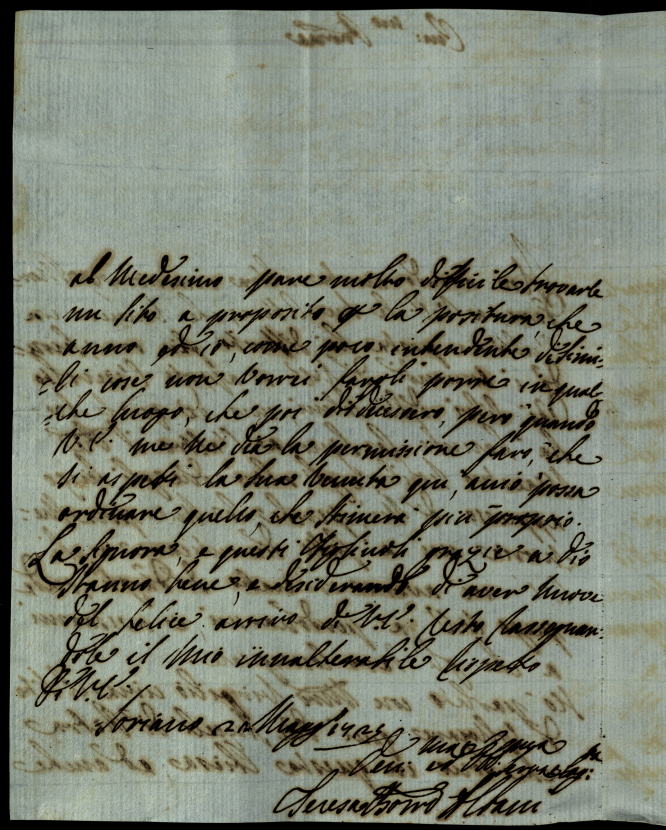 al Medesimo pare molto difficile trovarle
un sito a proposito p la positura, che
anno, ed io, come poco intendente di simi=
=li cose non vorrei fargli porre in qual=
=che luogo, che poi disdicessero, però quando
V.E. me ne dia la permissione farò, che
si aspetti la sua venuta qui, acciò possa
ordinare quello, che stimerà più proprio.
La Signora, e questi Figliuoli grazie a Dio
stanno bene, e desiderando di aver nuove
del felice arrivo di V.E. resto rassegnan=
=dole il mio inalterabile rispetto
Di V.E.
Soriano 20 Maggio
Teresa Borromeo Albani